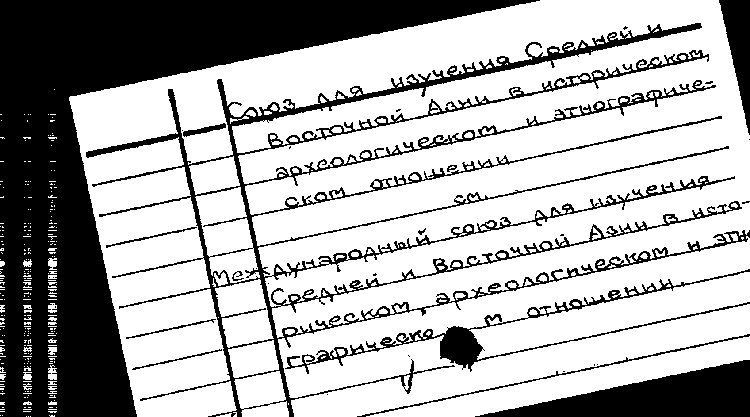 Союз для изучения Средней и
Восточной Азии в историческом,
археологическом и этнографиче-
ском отношении
см.
Международный союз для изучения
Средней и Восточной Азии в исто-
рическом, археологическом и этно
графическо м отношении.